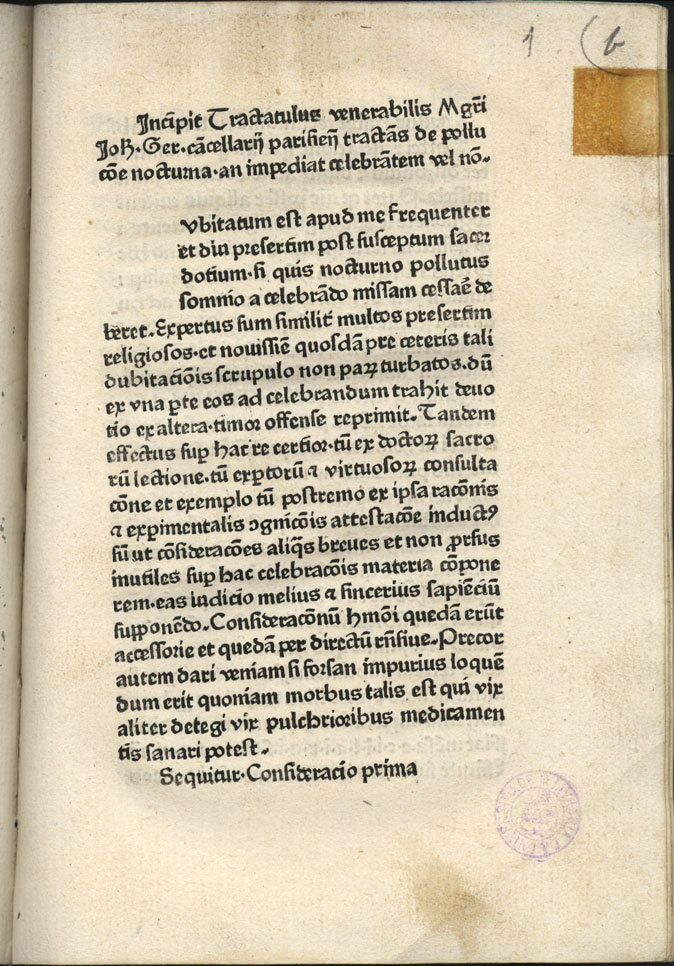 1 (b
Incipit Tractatulus venerabilis Mgr̄i
Joh·Ger·cācellarij parisieñ tractās de pollu
cōe nocturna·an impediat celebrātem vel nō·
vbitatum est apud me frequenter
et diu presertim post susceptum sacer
dotium·si quis nocturno pollutus
somnio a celebrādo missam cessaē de
beret·Expertus sum similit̄ multos presertim
religiosos·et nouissīe quosdā pre ceteris tali
dubitaciōis scrupulo non paꝝ turbatos·dū
ex vna ꝑte eos ad celebrandum trahit deuo
tio ex altera·timor offense reprimit·Tandem
effectus suꝑ hac re certior·tū ex doctoꝝ sacro
rū lectione·tū exꝑtorū ⁊ virtuosoꝝ consulta
cōne et exemplo tū postremo ex ipsa racōnis
⁊ exꝑimentalis ↄgnicōis attestacōe inductꝰ
sū ut cōsideracōes aliq̄s breues et non ꝓrsus
inutiles suꝑ hac celebracōis materia cōpone
rem·eas iudicio melius ⁊ sincerius sapiēciū
supponēdo·Consideracōnū hmōi quedā erūt
accessorie et quedā per directū rn̄siue·Precor
autem dari veniam si forsan impurius loquē
dum erit quoniam morbus talis est qui vix
aliter detegi vix pulchrioribus medicamen
tis sanari potest·
Sequitur·Consideracio prima